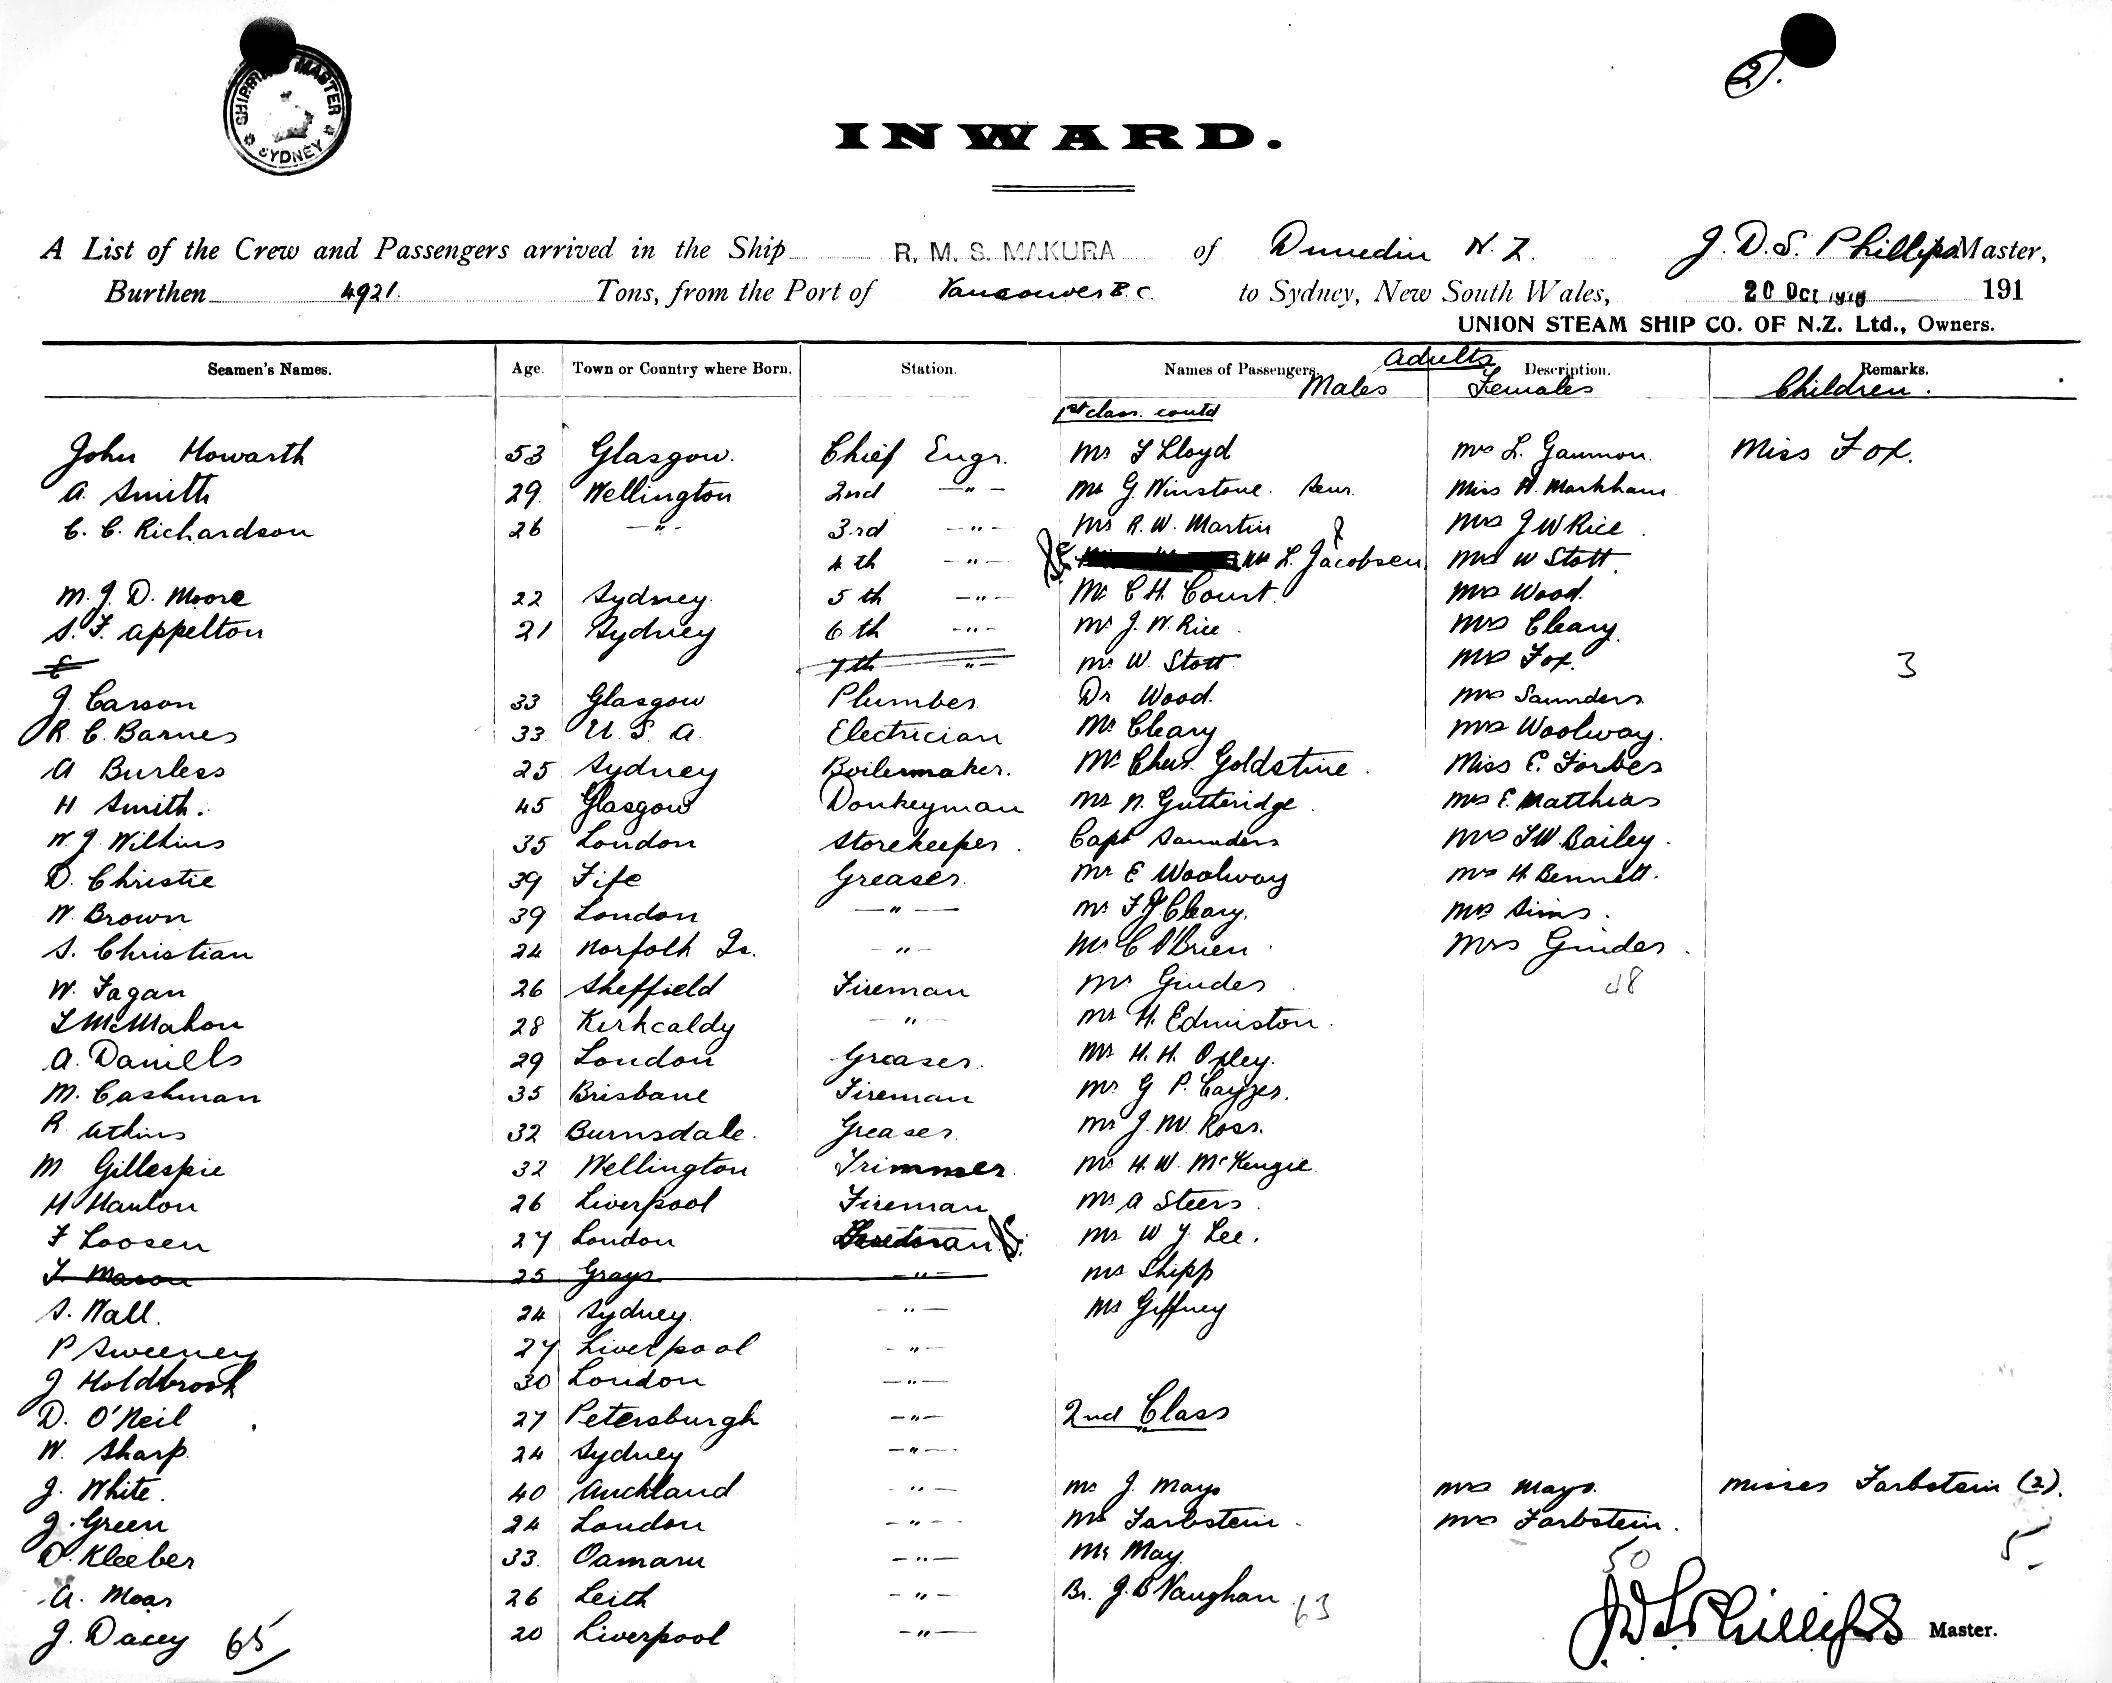 SHIPPING MASTER
SYDNEY
2).
INWARD.
A List of the Crew and Passengers arrived in the Ship R. M. S. MAKURA of Dunedin N. Z. J. D. S. Phillips Master,
Burthen 4921. Tons, from the Port of Vancouver B.C. to Sydney, New South Wales, 20 Oct 191
UNION STEAM SHIP CO. OF N.Z. Ltd., Owners.
Adults
Seamen's Names. Age. Town or Country where Born. Station. Names of Passengers. Description. Remarks.
Males Females Children.
1st class. contd
John Howarth 53 Glasgow. Chief Engr. Mr F Lloyd Mrs L. Gaumon. Miss Fox.
A. Smith 29 Wellington 2nd —"— Mr G. Winstone. Senr. Miss N. Markham
C. C. Richardson 26 —"— 3rd —"— Mr R. W. Martin Mrs J W Rice.
4th —"— Mr L. Jacobsen Mrs W Stott.
M. J. D. Moore 22 Sydney. 5th —"— Mr C H. Court. Mrs Wood.
S. F. Appelton 21 Sydney 6th —"— Mr J. W. Rice. Mrs Cleary.
7th "— Mr W. Stott Mrs Fox. 3
J. Carson 33 Glasgow Plumber Dr Wood. Mrs Saunders
R. C. Barnes 33 U. S. A. Electrician Mr Cleary Mrs Woolway.
A Burless 25 Sydney Boilermaker. Mr Chas. Goldstine. Miss E. Forbes
H Smith. 45 Glasgow Donkeyman Mr N. Gutteridge. Mrs E. Matthias
W. J. Wilkins 35 London Storekeeper. Capt Saunders Mrs F W. Bailey.
D. Christie 39 Fife Greaser. Mr E Woolway Mrs H. Bennett.
W. Brown 39 London —"— Mr F J Cleary. Mrs Sims.
S. Christian 24 Norfolk Is. —"— Mr C O'Brien. Mrs Ginder.
W. Fagan 26 Sheffield Fireman Mr Ginder. 48
T McMahon 28 Kirkcaldy —"— Mr H. Edmiston.
A. Daniells 29 London Greaser. Mr H. H. Oxley.
M. Cashman 35 Brisbane Fireman Mr G P. Cayzer.
R Atkins 32 Burnsdale. Greaser. Mr J. M. Ross.
M Gillespie 32 Wellington Trimmer. Mr H. W. McKenzie
H Hanlon 26 Liverpool Fireman Mr A Steers.
F Loosen 27 London Mr W J. Lee.
T. Mason 25 Grays —"— Mr Shipp
S. Wall. 24 Sydney. —"— Mr Giffney
P Sweeney 27 Liverpool —"—
J Holdbrook 30 London —"—
D. O'Neil 27 Petersburgh —"— 2nd Class
W. Sharp. 24 Sydney —"—
J. White. 40 Auckland —"— Mr J. Mays Mrs Mays. Misses Farbstein (2).
J. Green 24 London —"— Mr Farbstein. Mrs Farbstein.
D. Kleeber 33. Oamaru —"— Mr May. 50 5
A. Moar 26 Leith —"— Br. J. B Vaughan. 63
J. Dacey 65 20 Liverpool —"— J D S Phillips Master.